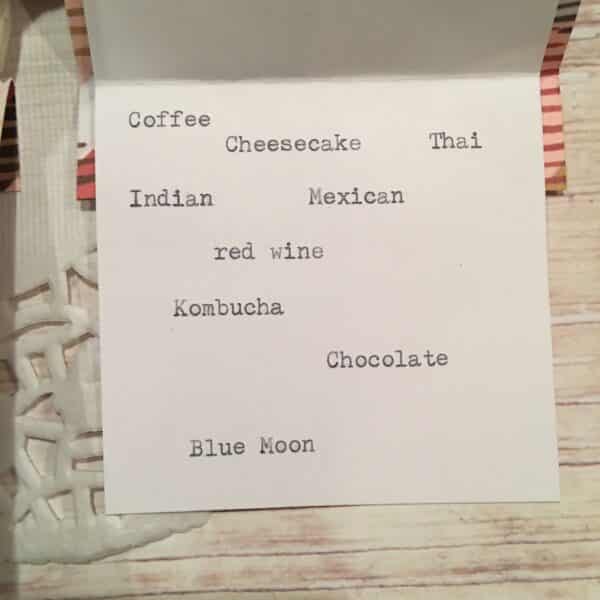 Coffee
Cheesecake Thai
Indian Mexican
red wine
Kombucha
Chocolate
Blue Moon